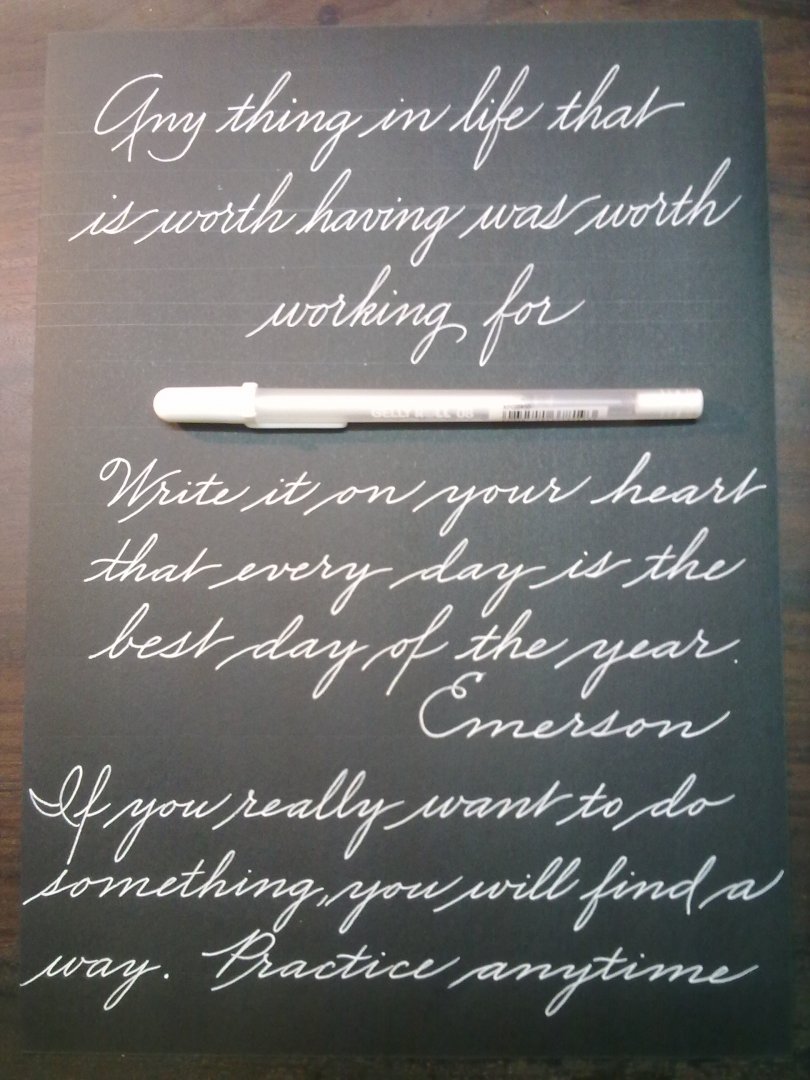 Any thing in life that
is worth having was worth
working for
GELLY ROLL 08
Write it on your heart
that every day is the
best day of the year.
Emerson
If you really want to do
something, you will find a
way. Practice anytime